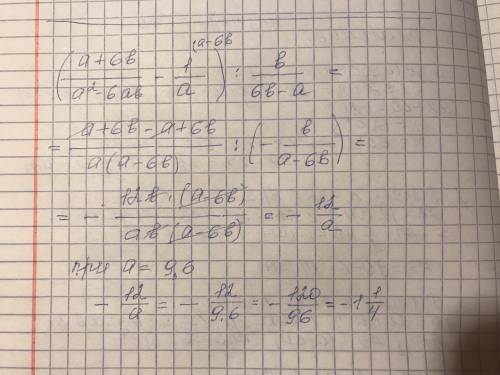 ( (a+6b)/(a²-6ab) - 1/a ^(a-6b ) : b/(6b-a) =
= (a+6b-a+6b)/(a(a-6b)) : ( - b/(a-6b) ) =
= - (12b·(a-6b))/(ab(a-6b)) = - 12/a
при a = 9,6
- 12/a = - 12/9,6 = - 120/96 = -1 1/4